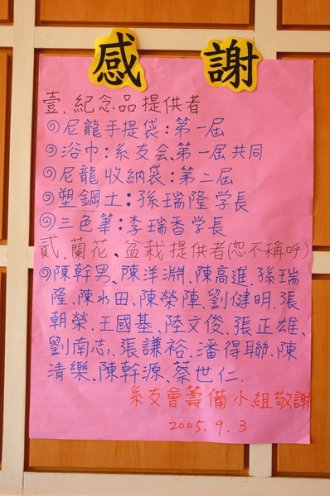 感謝
壹、紀念品提供者
◎尼龍手提袋:第一屆
◎浴巾:系友会、第一屆共同
◎尼龍收納袋:第二屆
◎塑鋼土:孫瑞隆学長
◎三色筆:李瑞香学長
貳、蘭花、盆栽提供者(恕不稱呼)
◎陳幹男、陳洋淵、陳高進、孫瑞
隆、陳水田、陳榮陣、劉健明、張
朝榮、王國基、陸文俊、張正雄、
劉南志、張謙裕、潘得聯、陳
清樂、陳幹源、蔡世仁.
系友會籌備小組敬謝
2005.9.3